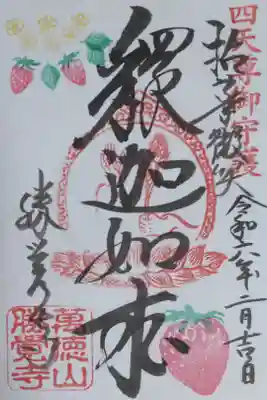 四天尊御守護
令和六年二月吉日
釈迦如来
勝覚寺
萬徳山
勝覺寺